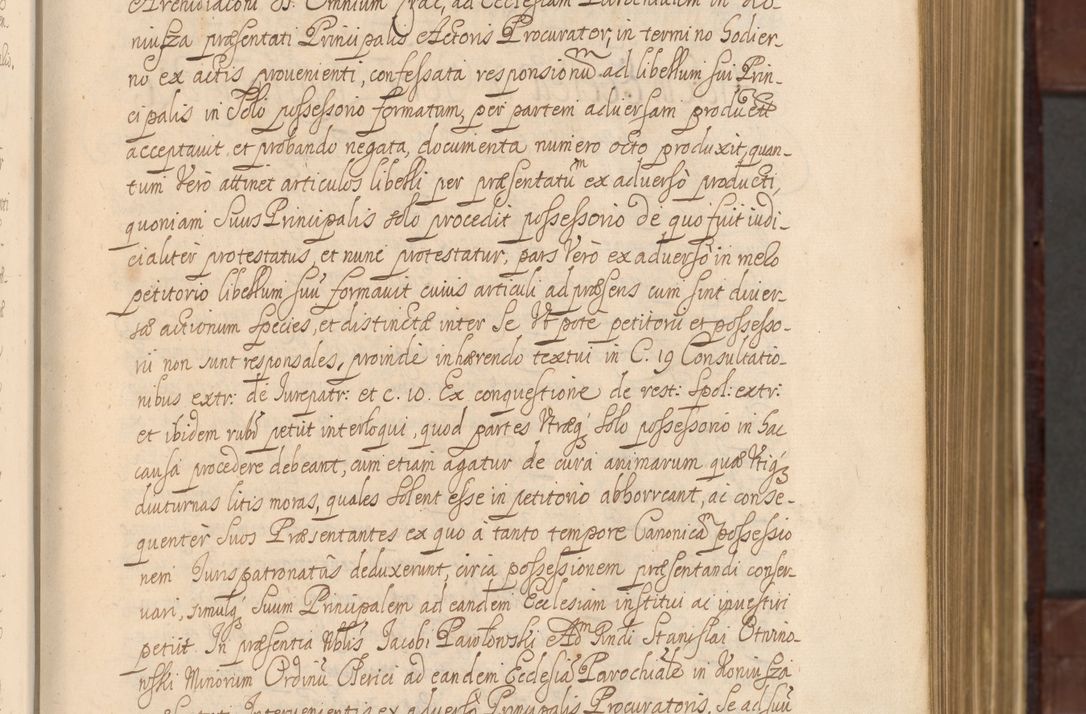 Archidiaconi SS. Omnium Crac, ad Ecclesiam Parochialem in Ko-
niusza præsentati Principalis Actoris Procurator, in termino hodier-
no ex actis provenienti, confessata responsionũ ad libellum sui Prin-
cipalis in Solo possessorio formatum, per partem adversam producta
acceptavit, et probando negata, documenta numero octo produxit, quan-
tum Verò attinet articulos libelli per præsentatũ ex adversò producti,
quoniam Suus Principalis solo procedit possessorio de quo fuit iudi-
cialiter protestatus, et nunc protestatur, pars Verò ex adversò in mero
petitorio libellum suũ formavit cuius articuli ad præsens cum sint diver-
sæ actionum Species, et distinctæ inter Se Ut pote petitorii et possesso-
rii non sunt responsales, proinde inhærendo textui in C. 19 Consultatio-
nibus extr: de Jurepatr: et c. 10. Ex conquestione de rest: Spol: extr:
et ibidem rubō petiit interloqui, quod partes Utræq́ʒ Solo possessorio in hac
causa procedere debeant, cum etiam agatur de cura animarum quæ Utiq́ʒ
diuturnas litis moras, quales Solent esse in petitorio abhorreant, ac conse-
quentèr Suos Præsentantes ex quo à tanto tempore Canonicā possessio
nem Jurispatronatûs deduxerunt, circa possessionem præsentandi conser-
vari, simulq́ʒ Suum Principalem ad eandem Ecclesiam institui ac investiri
petiit. In præsentia Nblis Jacobi Pawłowski Adm Rndi Stanislai Otwino-
wski Minorum Ordinũ Clerici ad eandem Ecclesiã Parochialē in Koniusza
Intervenientis ex adversò Principalis Procuratoris, Se ad suũ